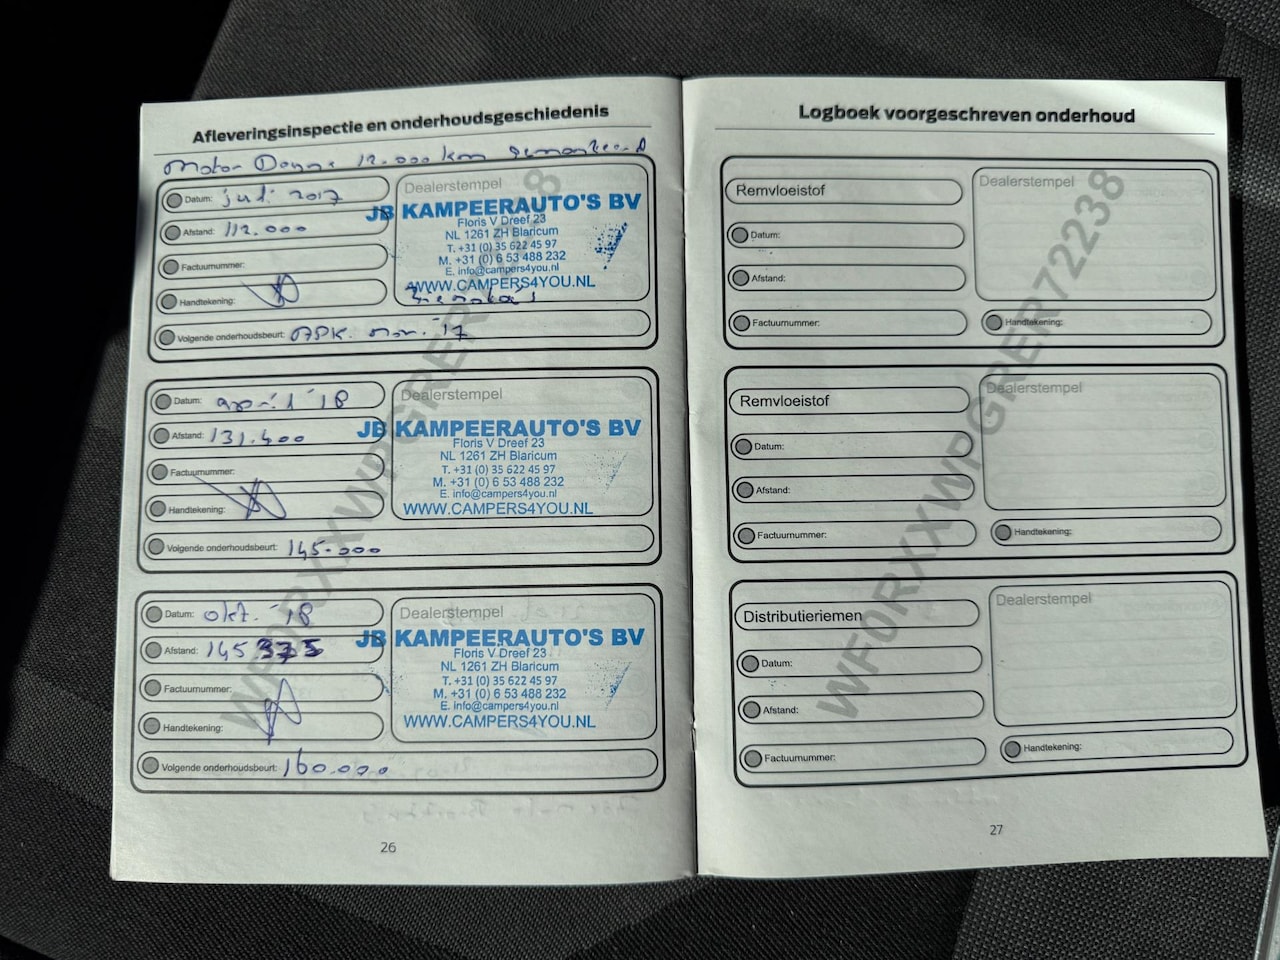 Afleveringsinspectie en onderhoudsgeschiedenis
Motor 12.000 km gemonteerd
Datum: juli 2017
Afstand: 112.000
Factuurnummer:
Handtekening:
Volgende onderhoudsbeurt: APK. nov. '17
Dealerstempel
JB KAMPEERAUTO'S BV
Floris V Dreef 23
NL 1261 ZH Blaricum
T. +31 (0) 35 622 45 97
M. +31 (0) 6 53 488 232
E. info@campers4you.nl
WWW.CAMPERS4YOU.NL
Datum: april '18
Afstand: 131.400
Factuurnummer:
Handtekening:
Volgende onderhoudsbeurt: 145.000
Dealerstempel
JB KAMPEERAUTO'S BV
Floris V Dreef 23
NL 1261 ZH Blaricum
T. +31 (0) 35 622 45 97
M. +31 (0) 6 53 488 232
E. info@campers4you.nl
WWW.CAMPERS4YOU.NL
Datum: okt. '18
Afstand: 145 375
Factuurnummer:
Handtekening:
Volgende onderhoudsbeurt: 160.000
Dealerstempel
JB KAMPEERAUTO'S BV
Floris V Dreef 23
NL 1261 ZH Blaricum
T. +31 (0) 35 622 45 97
M. +31 (0) 6 53 488 232
E. info@campers4you.nl
WWW.CAMPERS4YOU.NL
26
Logboek voorgeschreven onderhoud
Remvloeistof
Datum:
Afstand:
Factuurnummer:
Dealerstempel
Handtekening:
Remvloeistof
Datum:
Afstand:
Factuurnummer:
Dealerstempel
Handtekening:
Distributieriemen
Datum:
Afstand:
Factuurnummer:
Dealerstempel
Handtekening:
27
WF0RXXWPGRER72238